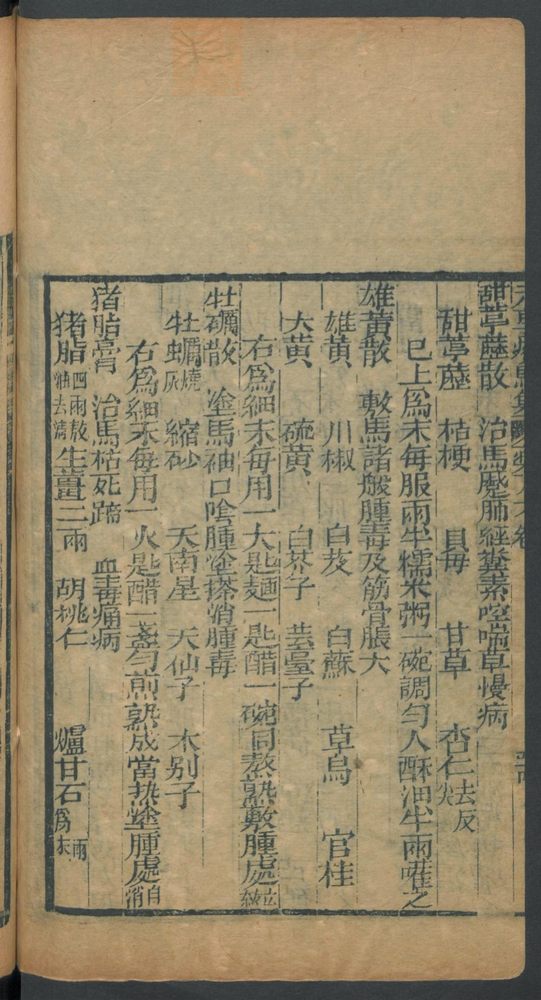 甜葶藶散　治馬肺經糞素喘草慢病
甜葶藶　桔梗　貝母　甘草　杏仁去皮尖
已上爲末每服兩半糯米粥一碗調勻入酥油半兩嚾之
雄黄散　敷馬諸般腫毒及筋骨脹大
雄黄　川椒　白芨　白蘇　草烏　官桂
大黄　硫黄　白芥子　芸薹子
右爲細末每用一大匙麺一匙醋一碗同熬熟敷腫處
牡礪散　塗馬袖口陰腫塗搽消腫毒
牡蠣燒灰　縮砂　天南星　天仙子　木别子
右爲細末每用一大匙醋一盞勻煎熟成當热塗腫處自消
猪脂膏　治馬枯死蹄　血毒痛病
猪脂四兩去生薑二兩　胡桃仁　爐甘石兩爲末